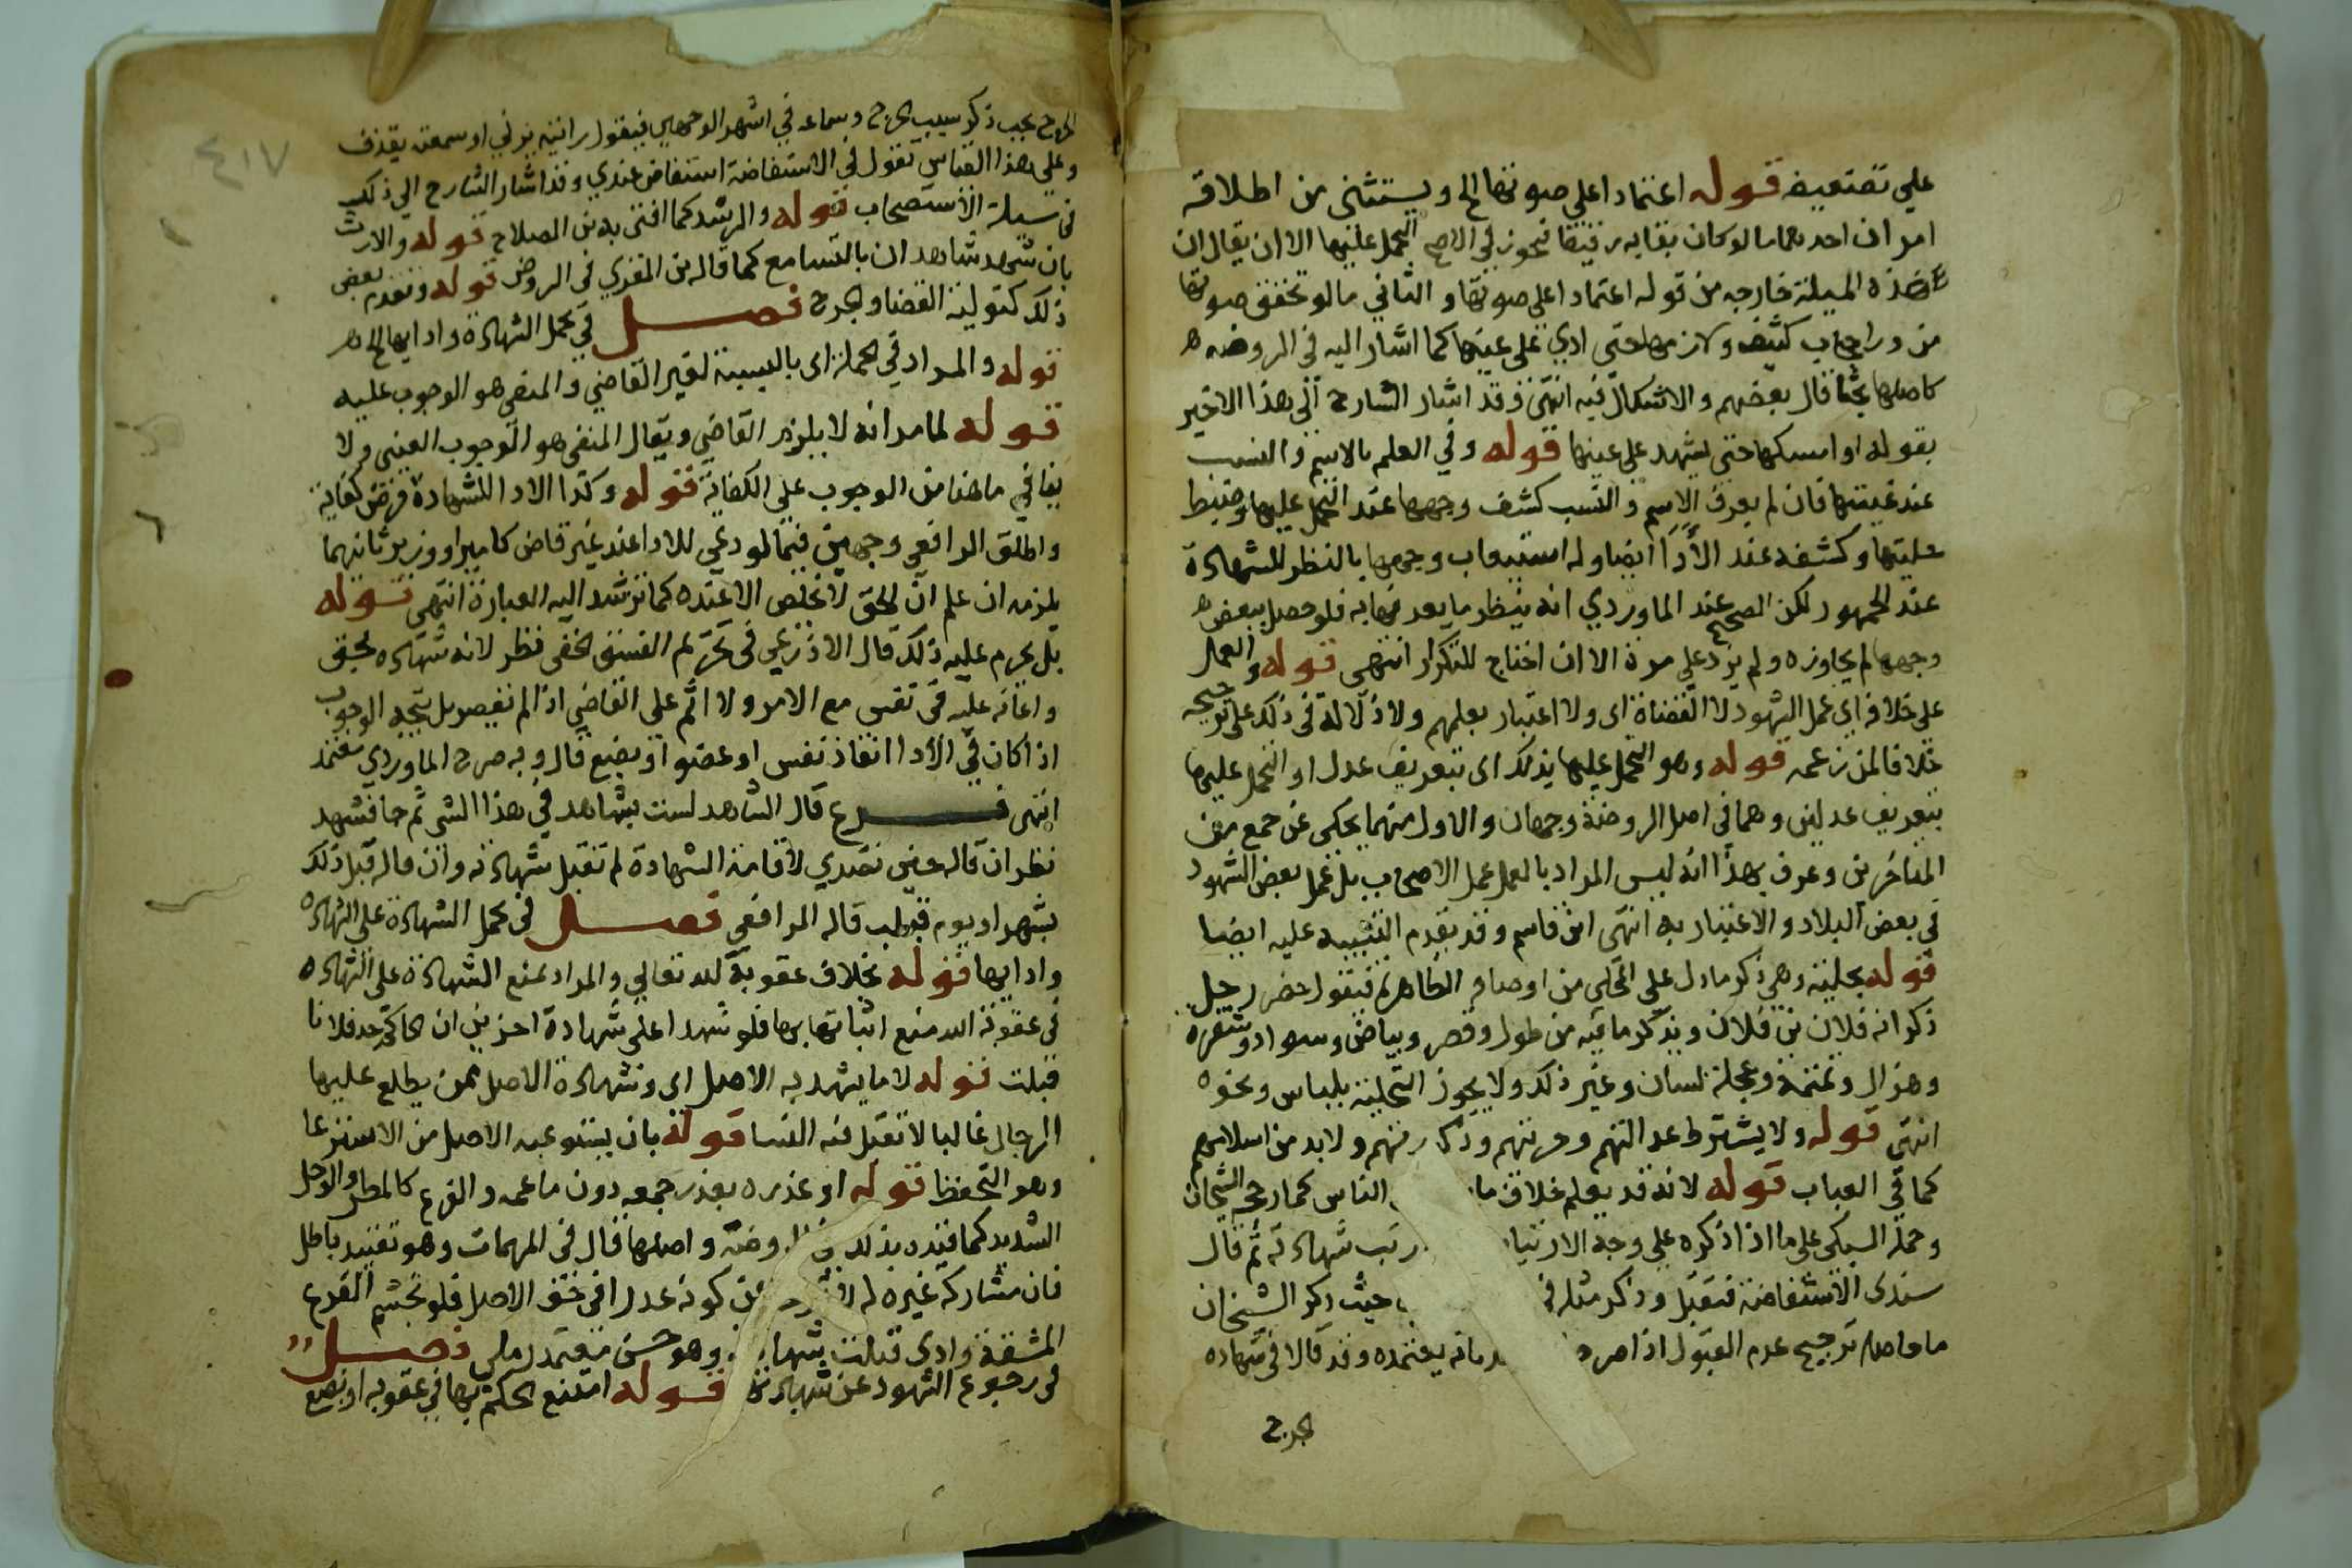 علي تضعيفه قوله اعتمادا علي صوتها الخ ويستثني من اطلاقه
امران احدهما ما لو كان بقابه رفيقا فيجوز في الاصح التحمل عليها الا ان يقال ان
هذه المسيلة خارجه من قوله اعتمادا علي صوتها والثاني ما لو تحقق صوتها
من ورا حجاب كثيف ولازمها حتي ادي علي عينها كما اشار اليه في الروضه
كاصلها بحثا قال بعضهم والاشكال فيه انتهي وقد اشار الشارح الي هذا الاخير
بقوله او امسكها حتي يشهد علي عينها قوله وفي العلم بالاسم والنسب
عند غيبتها فان لم يعرف الاسم والنسب كشف وجهها عند التحمل عليها وضبط
حليتها وكشفه عند الأدا ايضا وله استيعاب وجهها بالنظر للشهادة
عند الجمهور لكن الصحيح عند الماوردي انه ينظر ما يعرفها به فلو حصل ببعض
وجهها لم يجاوزه ولم يزد علي مرة الا ان احتاج للتكرار انتهي قوله والعمل
علي خلافه اي عمل الشهود لا القضاة اي ولا اعتبار بعلمهم ولا دلالة في ذلك علي ترجيحه
خلافا لمن زعمه قوله وهو التحمل عليها بذلك اي بتعريف عدل او التحمل عليها
بتعريف عدلين وهما في اصل الروضة وجهان والاول منهما يحكي عن جمع من
المتاخرين وعرف بهذا انه ليس المراد بالعمل عمل الاصحاب بل عمل بعض الشهود
في بعض البلاد والاعتبار به انتهي ابن قاسم وقد تقدم التنبيه عليه ايضا
قوله بحليته وهي ذكر ما دل علي المحلي من اوصافه الظاهرة فيقول حضر رجل
ذكر انه فلان بن فلان ويذكر ما فيه من طول وقصر وبياض وسواد وشقره
وهزال وتمتمة وعجلة لسان وغير ذلك ولا يجوز التحلية بلباس ونحوه
انتهي قوله ولا يشترط عدالتهم وحريتهم وذكورتهم ولا بد من اسلامهم
كما في العباب قوله لانه قد يعلم خلاف ما الناس كما رجحه الشيخان
وحمله السبكي علي ما اذا ذكره علي وجه الارتيا رتب شهادته ثم قال
سندي الاستفاضة فتقبل وذكر مثله في حيث ذكر الشيخان
ما حاصله ترجيح عدم القبول اذا صرح بانه يعتمده وقد قالا في شهاده
الجرح
٤١٧
الجرح يجب ذكر سبب الجرح وسماعه في اشهر الوجهين فيقول رايته يزني او سمعته يقذف
وعلي هذا القياس تقول في الاستفاضة استفاض عندي وقد اشار الشارح الي ذلك
في مسيلة الاستصحاب قوله والرشد كما افتي به بن الصلاح قوله والارث
بان شهد شاهدان بالتسامع كما قاله بن المقري في الروض قوله وتقدم بعض
ذلك كتولية القضا والجرح فصل في تحمل الشهادة وادايها الخ
قوله والمراد في الجملة اي بالنسبة لغير القاضي والمنفي هو الوجوب عليه
قوله لما مر انه لا يلزم القاضي ويقال المنفي هو الوجوب العيني ولا
ينافي ما هنا من الوجوب علي الكفاية قوله وكذا الادا للشهادة فرض كفاية
واطلق الرافعي وجهين فيما لو دعي للادا عند غير قاض كامير او وزير ثانيهما
يلزمه ان علم ان الحق لا يخلص الا عنده كما ترشد اليه العبارة انتهي قوله
بل يحرم عليه ذلك قال الاذرعي في تحريم الفسق الخفي نظر لانه شهاده بحق
واعانه عليه في نفس مع الامر ولا اثم علي القاضي اذا لم يقصر بل يتجه الوجوب
اذا كان في الأدا انقاذ نفس او عضو او بضع قال وبه صرح الماوردي معتمد
انتهي فرع قال الشاهد لست بشاهد في هذا الشي ثم جا فشهد
نظر ان قاله حين تصدي لاقامة الشهادة لم تقبل شهادته وان قاله قبل ذلك
بشهر او يوم قبلت قاله الرافعي فصل في تحمل الشهادة علي الشهاده
وادايها قوله بخلاف عقوبة لله تعالي والمراد بمنع الشهادة علي الشهاده
في عقوبة الله منع اثباتها بها فلو شهدا علي شهادة اخرين ان الحاكم حد فلانا
قبلت قوله لا ما يشهد به الاصل اي وشهادة الاصل ممن يطلع عليها
الرجال غالبا لا تقبل فيه النسا قوله بان يسترعيه الاصل من الاسترعا
وهو التحفظ قوله او عذره بعذر جمعه دون ما عمه والفرع كالمطر والوحل
الشديد كما قيده بذلك في الروضة واصلها قال في المهمات وهو تقييد باطل
فان مشاركة غيره له كونه عذرا في حق الاصل فلو تجشم الفرع
المشقة وادي قبلت شهادته وهو حسن معتمد رملي فصل
في رجوع الشهود عن شهادتهم قوله امتنع الحكم بها في عقوبه او بضع